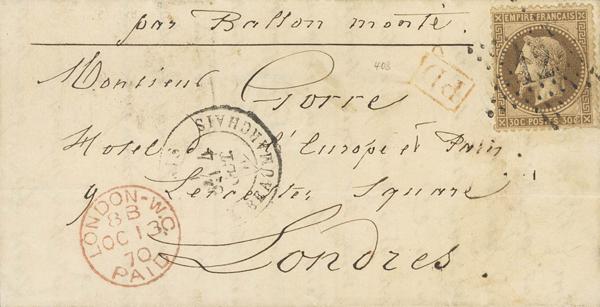 par Ballon monté.
EMPIRE FRANÇAIS
30C POSTES 30C
403
PD
Monsieur Gorre
Hotel de l'Europe et Paris
9 Leicester Square
Londres.
BEAUMARCHAIS
LONDON-W.C.
8B
OC 13
70
PAID